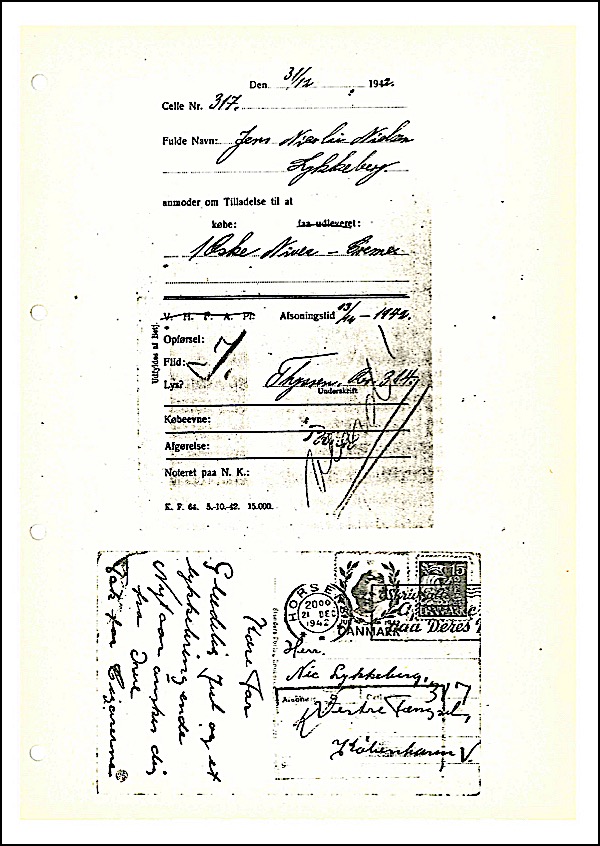 Den 31/12 1942.
Celle Nr. 317.
Fulde Navn: Jens Nicolai Nielsen
Lykkeberg.
anmoder om Tilladelse til at
købe: faa udleveret:
1 Æske Nivea - Creme
V. H. F. A. Pl: Afsoningstid 13/11 - 1942.
Udfyldes af Betj.
Opførsel:
Flid:
Lys?
Thyssen. Nr. 314.
Underskrift
Købeevne:
Afgørelse:
Noteret paa N. K.:
K. F. 64. 5.-10.-42. 15.000.
Kære Far
Glædelig Jul og et
lykkebringende
Nytaar ønskes dig
fra Inue
Tak for Cigarerne.
HORSENS
2000
21 DEC
1942
DANMARK
15
paa Deres
Herr.
Nic Lykkeberg.
317
Vestre Fængsel,
København V.